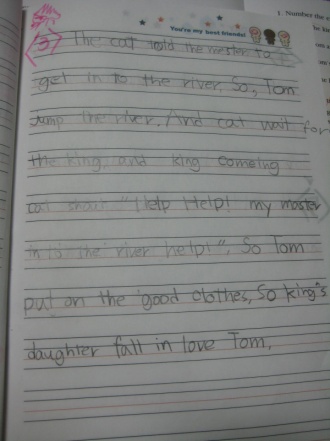 You're my best friends!
1. Number the
(3) The cat told the master to
get in to the river. So, Tom
Jump the river. And cat wait for
the king and king comeing
cat shout "Help Help! my master
in to the river help!". So Tom
put on the good clothes, So king's
daughter fall in love Tom.